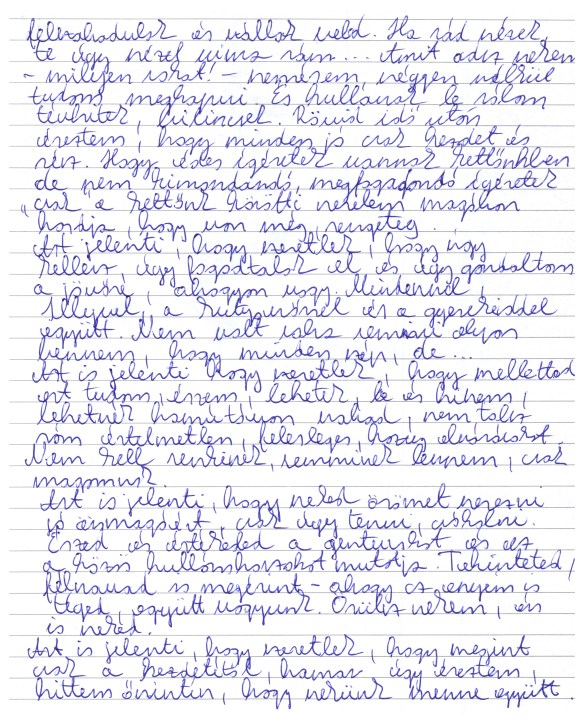 felszabadulsz és vállalsz veled. Ha rád nézek,
te úgy nézel vissza rám... Amit adsz nekem
- milyen sokat! - nem érzem, négyen nélkül
tudom meghajuni. És hullanak le rólam
terhek, bilincsek. Rövid idő után
éreztem, hogy minden jó csak kezdet és
rész. Hogy édes ígéretek vannak kettőnkben
de nem kimondandó, megfogadandó ígéretek
"csak" a kettőnk közötti szerelem magában
hordja, hogy van még, rengeteg.
Azt jelenti, hogy szeretlek, hogy úgy
kellesz, úgy fogadtalak el és úgy gondoltam
a jövőre, ahogyan vagy. Mindennel,
a kutyusunkkal és a gyerekeiddel
együtt. Nem volt soha semmi olyan
bennem, hogy minden szép, de...
Azt is jelenti hogy szeretlek, hogy melletted
azt tudom, érzem, lehetek, le és hiszem,
lehetnék hamutálgyon nálad, nem talál
rám értelmetlen, felesleges, hosszú elvárásokat.
Nem kell senkinek, semminek lennem, csak
magamnak.
Azt is jelenti, hogy neked örömet szerezni
jó önmagáért, csak úgy tenni, csókolni.
Eszed és ízlésed a zsenijeinket és ez
a közös hullámhosszokat mutatja. Tekinteted,
félszavad is megérint - ahogy az enyém is
téged, együtt vagyunk. Örülsz nekem, én
is neked.
Azt is jelenti, hogy szeretlek, hogy megint
csak a kezdetitől, hamar úgy éreztem,
hittem őszintén, hogy nekünk menne együtt.